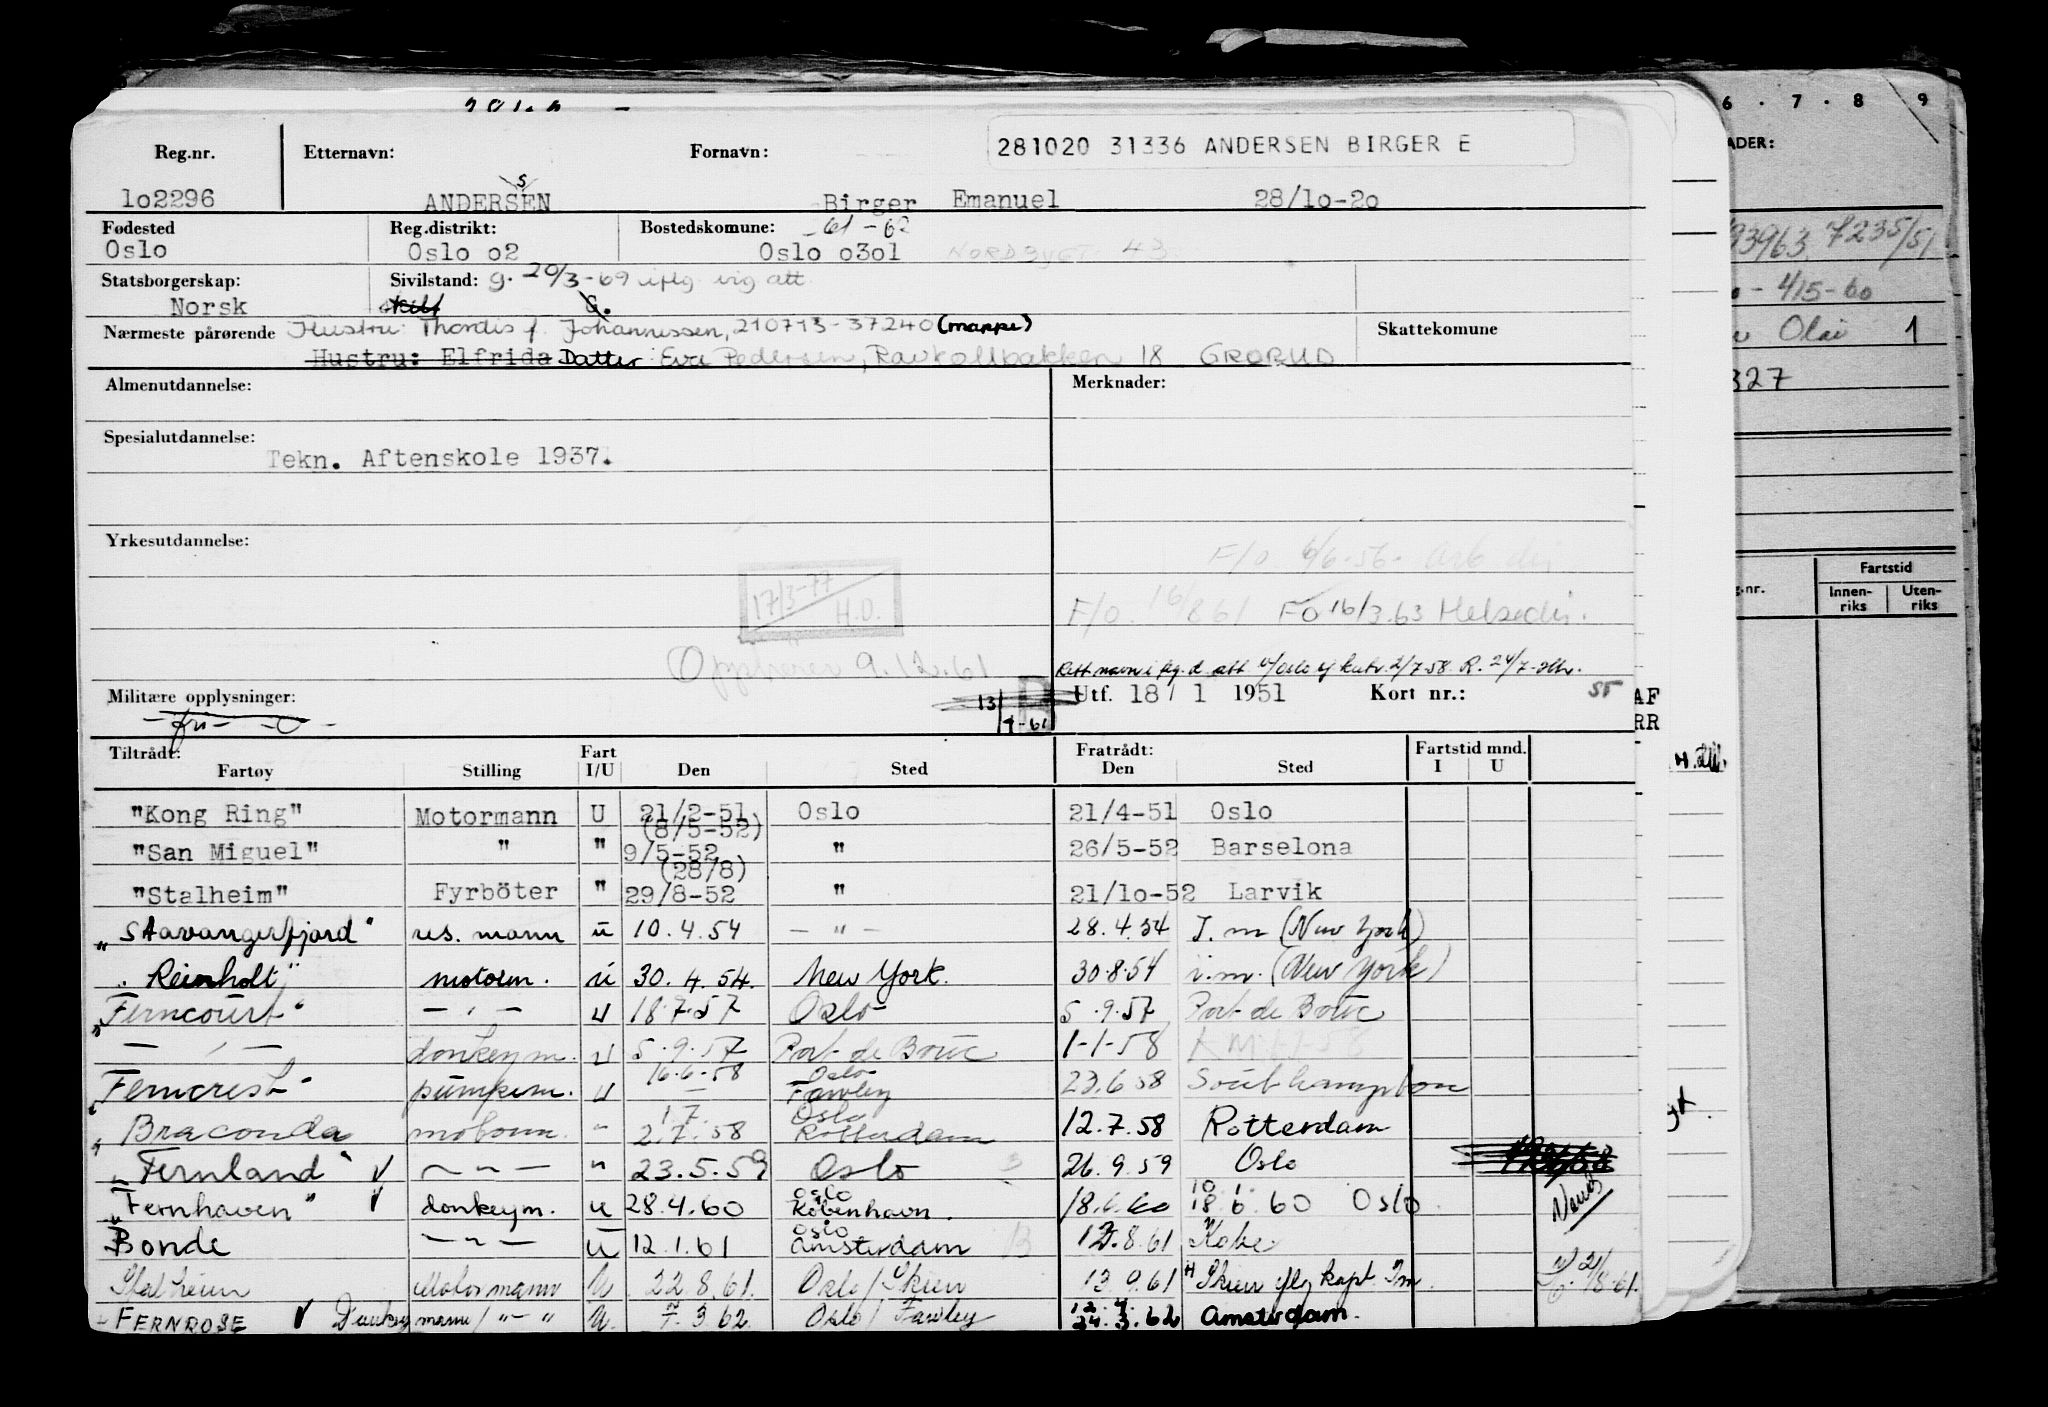 281020 31336 ANDERSEN BIRGER E
Reg.nr. Etternavn: Fornavn:
s
lo2296 ANDERSEN Birger Emanuel 28/lo-2o
Fødested Reg.distrikt: Bostedskomune: 61-62
Oslo Oslo o2 Oslo o3ol
Statsborgerskap: Sivilstand: g. 20/3-69 iflg. vig att
Norsk G.
Nærmeste pårørende Hustru: Thordis f. Johannessen, 210713-37240 (mappe) Skattekomune
Hustru: Elfrida Datter: Eva Pedersen, Ravkollbakken 18 GRORUD
Almenutdannelse: Merknader:
Spesialutdannelse:
Tekn. Aftenskole 1937.
Yrkesutdannelse:
F/o 6/6-56.
17/3-77
H.D.
F/o. 16/8 61 FO 16/3.63 Helsedir.
9.12.61
Militære opplysninger: Utf. 18/ 1 1951 Kort nr.:
-fri-
Tiltrådt: Fratrådt:
Fartøy Stilling Fart I/U Den Sted Den Sted Fartstid mnd. I U
"Kong Ring" Motormann U 21/2-51 Oslo 21/4-51 Oslo
(8/5-52)
"San Miguel" " " 9/5-52 " 26/5-52 Barselona
(28/8)
"Stalheim" Fyrböter " 29/8-52 " 21/lo-52 Larvik
"Stavangerfjord" res. mann u 10.4.54 - " - 28.4.54 I.m (New York)
"Reinholt" motorm. u 30.4.54. New York. 30.8.54 i.m. (New York)
"Ferncourt" - " - u 18.7.57 Oslo 5.9.57 Port de Bouc
- " - donkeym. u 5.9.57 Port de Bouc 1-1-58
16.6.58 Oslo
"Ferncrest" pumpem. u — Fawley 23.6.58 Southampton
1.7. Oslo
"Braconda motorm. " 2.7.58 Rotterdam 12.7.58 Rotterdam
"Fernland" ✓ - " - " 23.5.59 Oslo 26.9.59 Oslo
Oslo 10 1.
"Fernhaven" ✓ donkeym. u 28.4.60 København. 18.6.60 18.6.60 Oslo
Oslo
Bonde - " - u 12.1.61 Amsterdam 12.8.61 Kobe
Stalheim Motormann U 22.8.61. Oslo/Skien 13.9.61 Skien iflg kapt. Im.
FERNROSE ✓ Donkeymann/ " U. 7.3.62 Oslo/Fawley 24.3.62 Amsterdam.
6 · 7 · 8 9
ADER:
93963. 7235/51
- 4/5-60
Olai 1
327
Fartstid
g.nr. Innen-riks Uten-riks
AF
RR